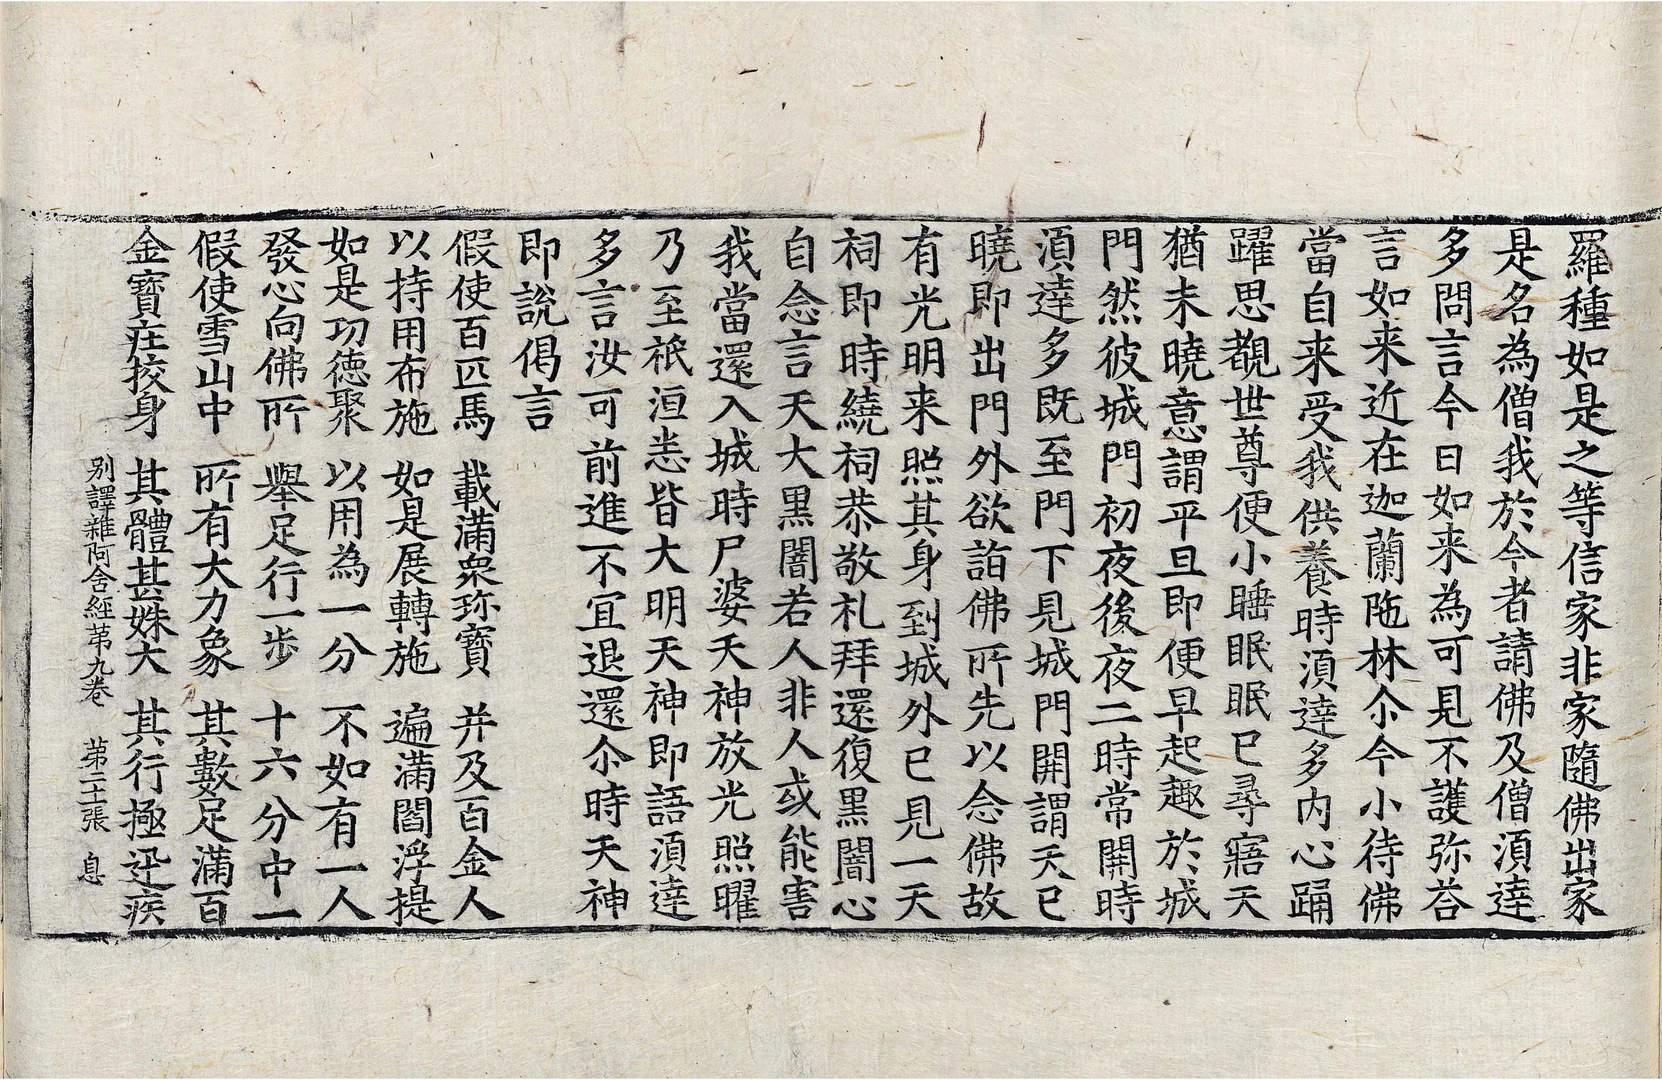 羅種如是之等信家非家隨佛出家
是名為僧我於今者請佛及僧湏達
多問言今日如来為可見不護弥荅
言如来近在迦蘭陁林尒今小待佛
當自来受我供養時湏達多内心踊
躍思覩世尊便小睡眠眠已尋寤天
猶未曉意謂平旦即便早起趣於城
門然彼城門初夜後夜二時常開時
湏達多既至門下見城門開謂天已
曉即出門外欲詣佛所先以念佛故
有光明来照其身到城外已見一天
祠即時繞祠恭敬礼拜還復黒闇心
自念言天大黒闇若人非人或能害
我當還入城時尸婆天神放光照曜
乃至祇洹悉皆大明天神即語湏達
多言汝可前進不冝退還尒時天神
即說偈言
假使百匹馬　載滿衆珎寶　并及百金人
以持用布施　如是展轉施　遍滿閻浮提
如是功德聚　以用為一分　不如有一人
發心向佛所　舉足行一步　十六分中一
假使雪山中　所有大力象　其數足滿百
金寶莊挍身　其體甚姝大　其行極迅疾
别譯雜阿含經苐九卷　苐二十張　息